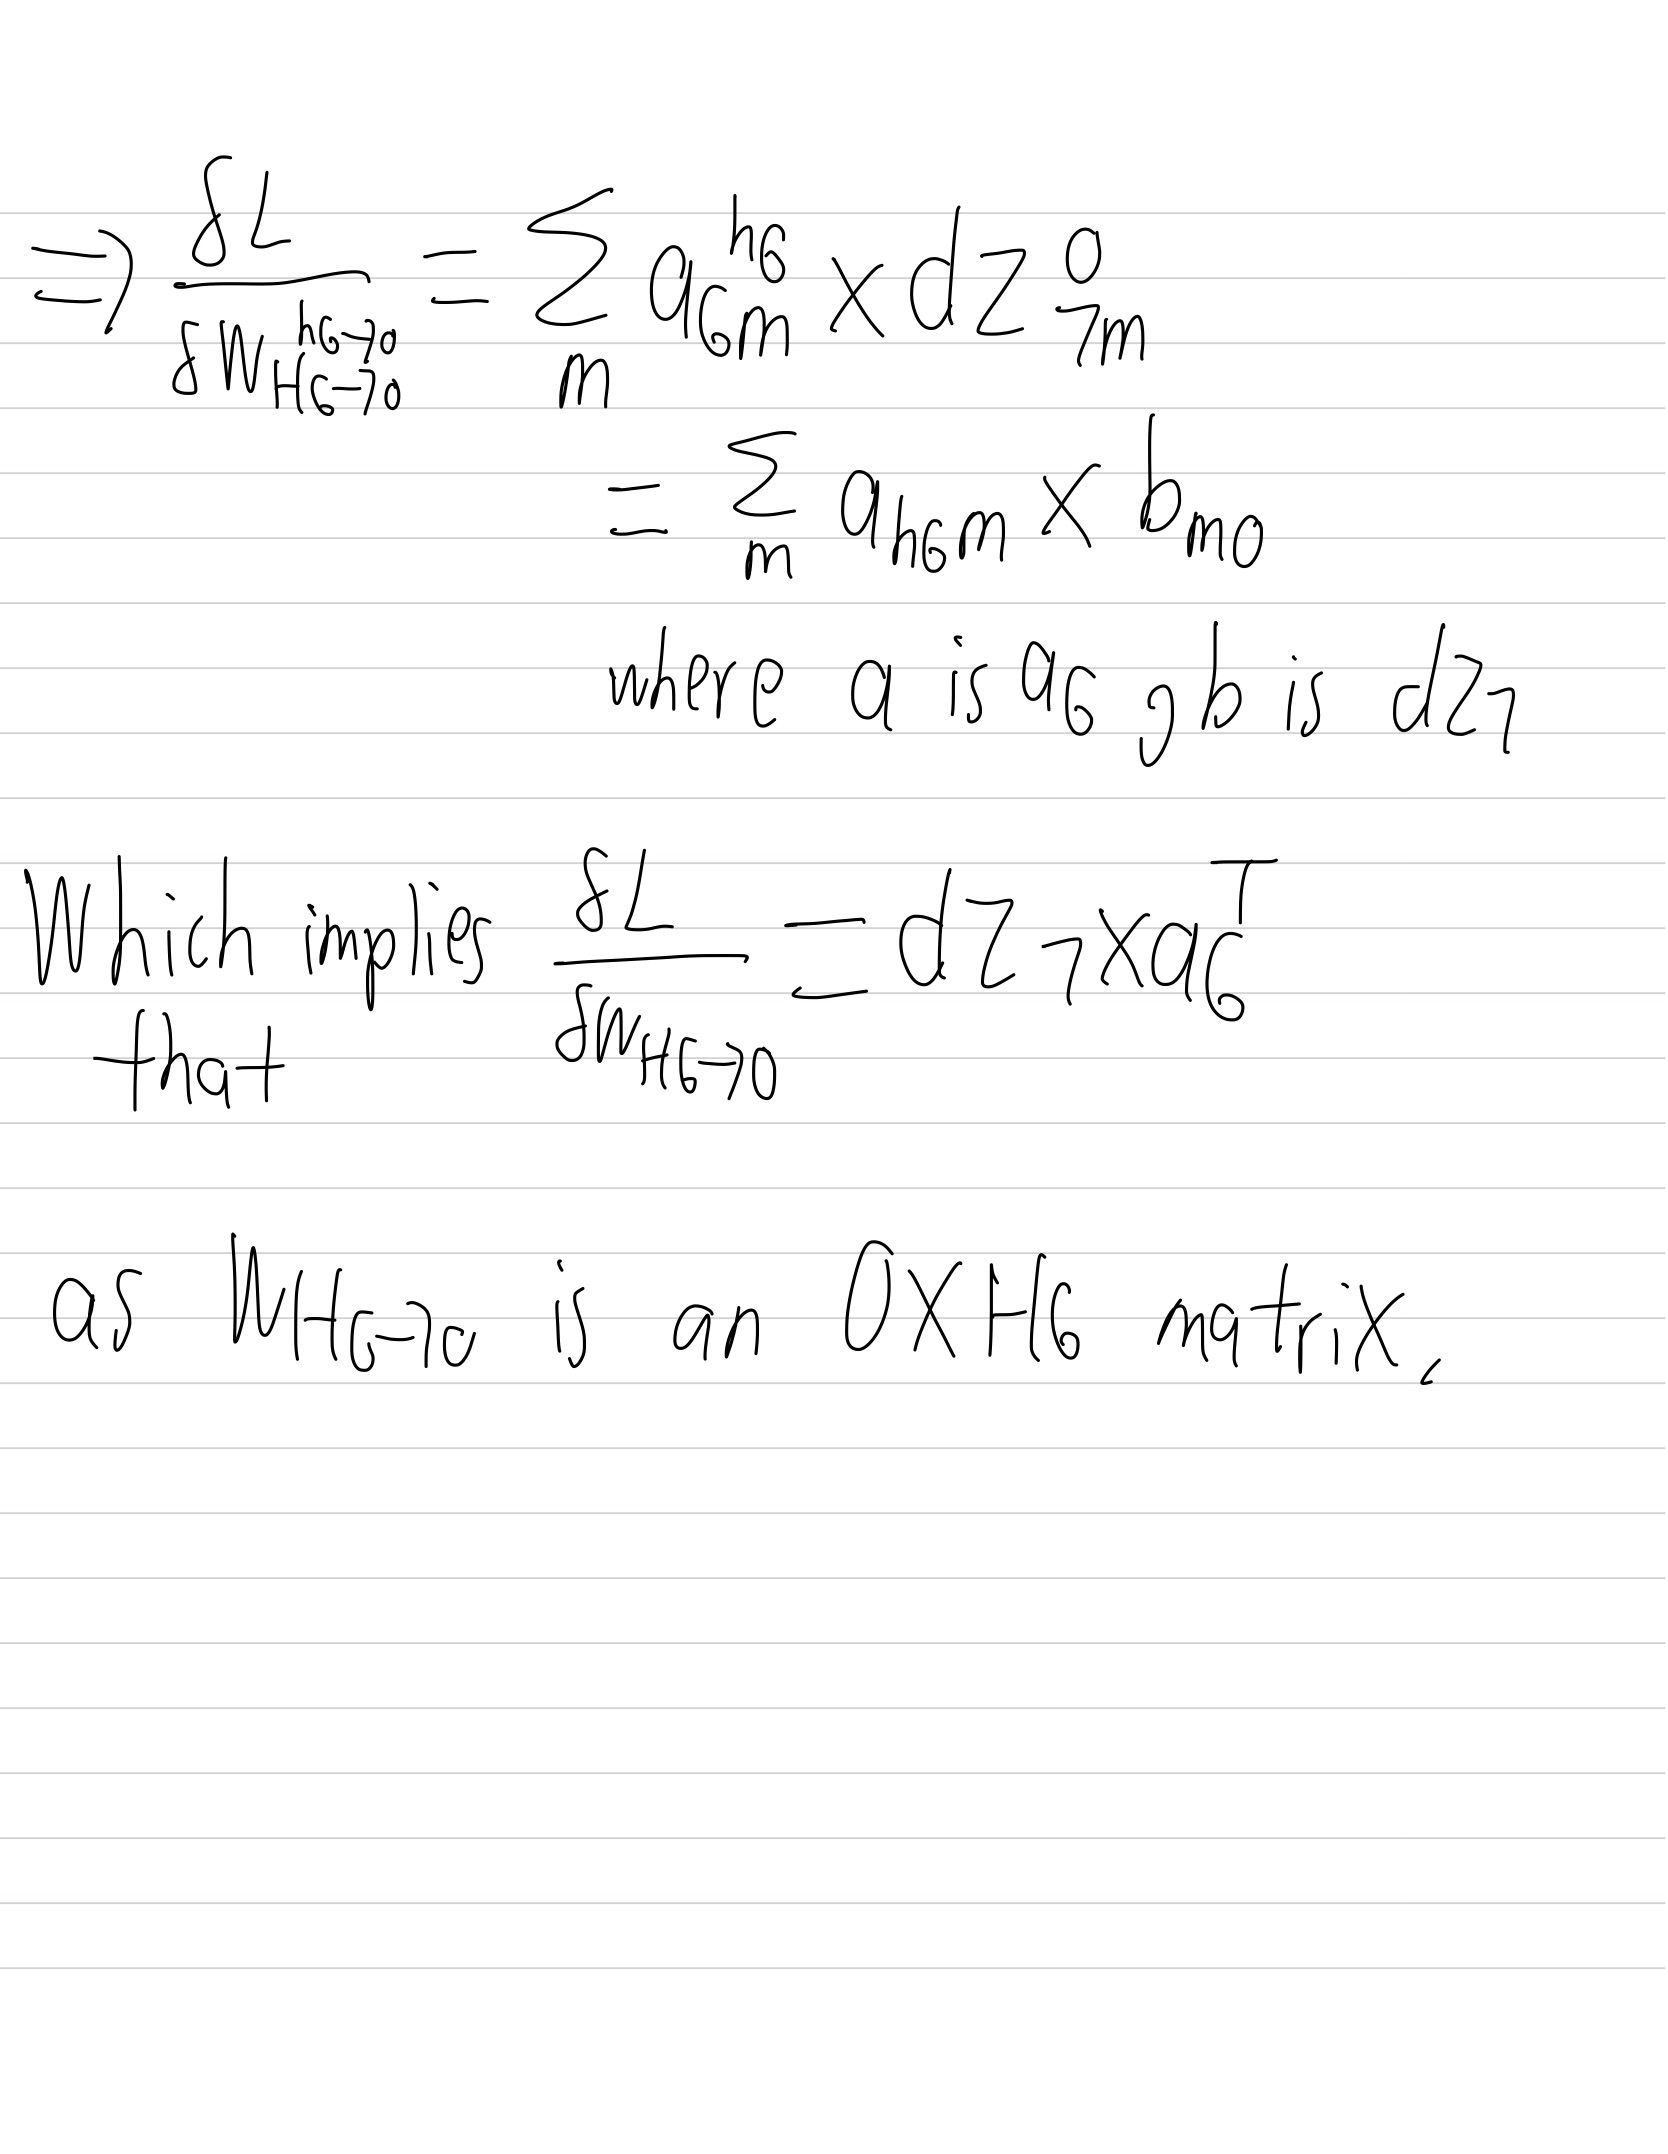 ⇒ δL/δW_{H6→O}^{h6→o} = Σ_m a_{6m}^{h6} × dz_{7m}^{o}
= Σ_m a_{h6m} × b_{mo}
where a is a_6, b is dz_7
Which implies that δL/δW_{H6→O} = dz_7 × a_6^T
as W_{H6→O} is an O×H6 matrix.